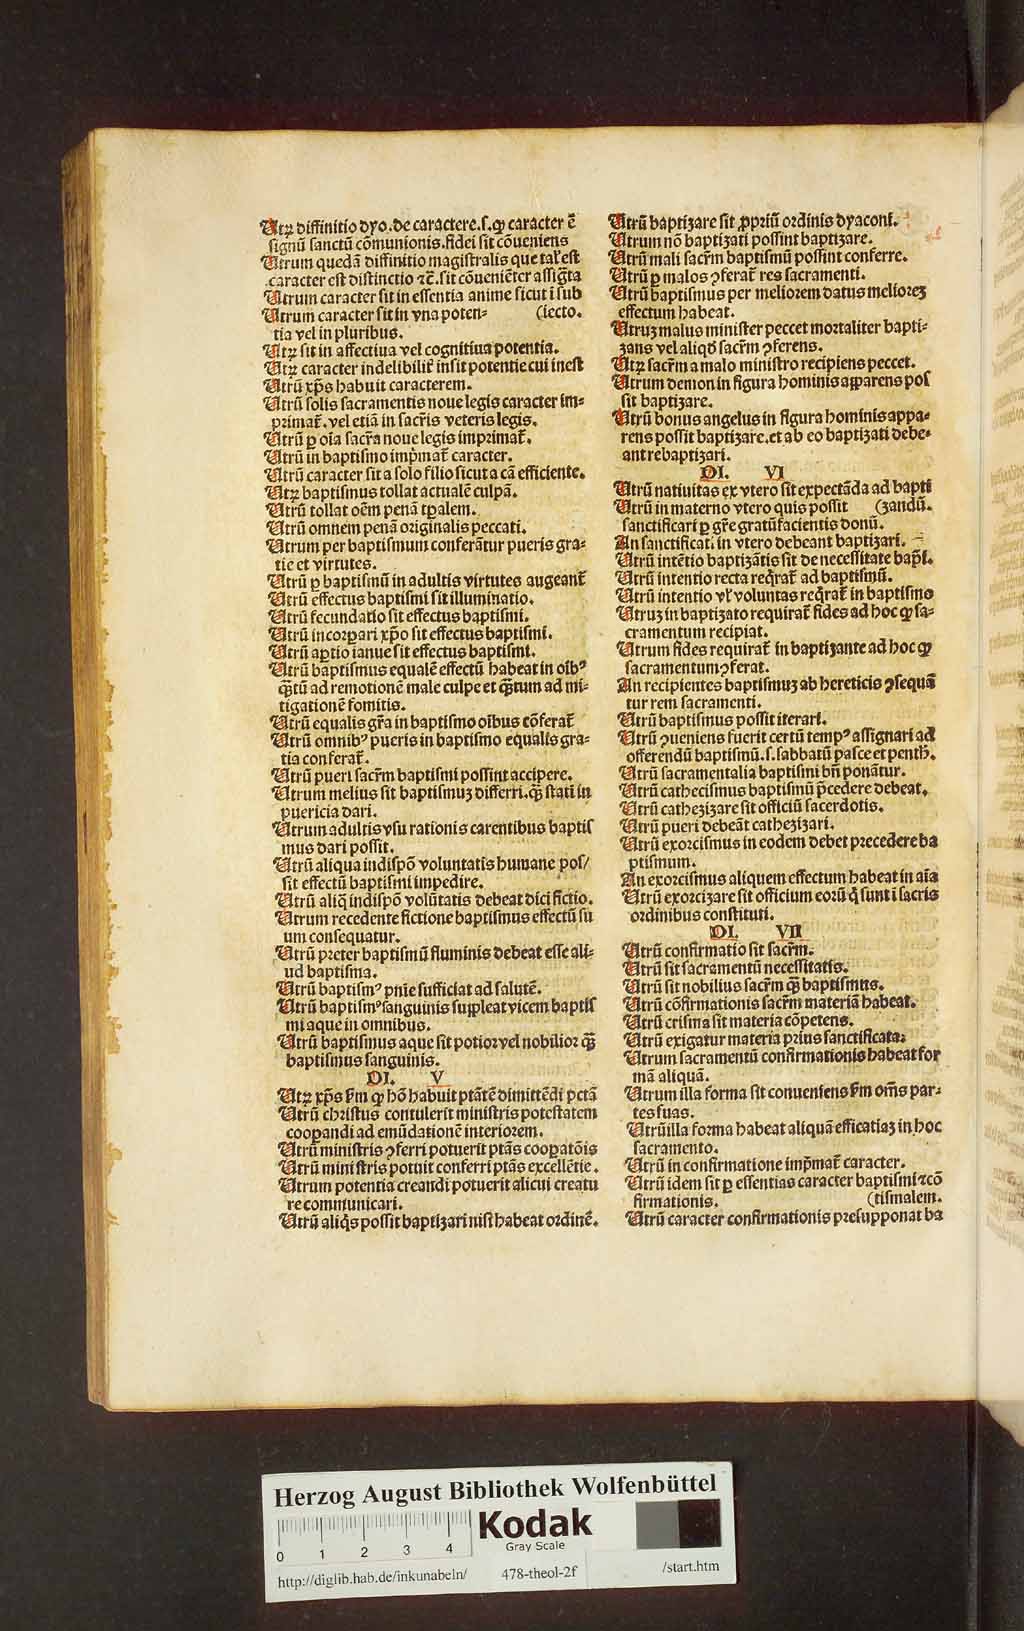 Utrꝫ diffinitio dyo. de caractere .s. ꝙ caracter ē
signū sanctū cōmunionis. fidei sit cōueniens
Utrum quedā diffinitio magistralis que tal' est
caracter est distinctio ⁊c̄. sit cōueniēter assigͣta
Utrum caracter sit in essentia anime sicut ī sub
Utrum caracter sit in vna poten⸗ (iecto.
tia vel in pluribus.
Utrꝫ sit in affectiua vel cognitiua potentia.
Utrꝫ caracter indelibilit̄ insit potentie cui inest
Utrū xp̄s habuit caracterem.
Utrū solis sacramentis noue legis caracter im⸗
primat̄. vel etiā in sacr̄is veteris legis.
Utrū ꝑ oīa sacr̄a noue legis imprimat̄.
Utrū in baptismo imp̄mat̄ caracter.
Utrū caracter sit a solo filio sicut a cā efficiente.
Utrꝫ baptismus tollat actualē culpā.
Utrū tollat oēm penā tp̄alem.
Utrū omnem penā originalis peccati.
Utrum per baptismum conferātur pueris gra⸗
tie et virtutes.
Utrū ꝑ baptismū in adultis virtutes augeant̄
Utrū effectus baptismi sit illuminatio.
Utrū fecundatio sit effectus baptismi.
Utrū incorꝑari xp̄o sit effectus baptismi.
Utrū aptio ianue sit effectus baptismi.
Utrū baptismus equalē effectū habeat in oībꝰ
qͣ̄tū ad remotionē male culpe et qͣ̄tum ad mi⸗
tigationē fomitis.
Utrū equalis gr̄a in baptismo oībus cōferat̄
Utrū omnibꝰ pueris in baptismo equalis gra⸗
tia conferat̄.
Utrū pueri sacr̄m baptismi possint accipere.
Utrum melius sit baptismuꝫ differri. qͣ̄ statī in
puericia dari.
Utrum adultis vsu rationis carentibus baptis
mus dari possit.
Utrū aliqua indispō voluntatis humane pos/
sit effectū baptismi impedire.
Utrū aliq̄ indispō volūtatis debeat dici fictio.
Utrum recedente fictione baptismus effectū su
um consequatur.
Utrū preter baptismū fluminis debeat esse ali⸗
ud baptisma.
Utrū baptismꝰ pn̄ie sufficiat ad salutē.
Utrū baptismꝰ sanguinis suppleat vicem baptis
mi aque in omnibus.
Utrū baptismus aque sit potior vel nobilior qͣ̄
baptismus sanguinis.
DI. V
Utrꝫ xp̄s s̄m ꝙ hō habuit ptātē dimittēdi pctā
Utrū christus contulerit ministris potestatem
cooꝑandi ad emūdationē interiorem.
Utrū ministris ꝯferri potuerit ptās cooꝑatōis
Utrū ministris potuit conferri ptās excellētie.
Utrum potentia creandi potuerit alicui creatu
re communicari.
Utrū aliq̄s possit baptizari nisi habeat ordinē.
Utrū baptizare sit ꝓpriū ordinis dyaconi.
Utrum nō baptizati possint baptizare.
Utrū mali sacr̄m baptismū possint conferre.
Utrū ꝑ malos ꝯferat̄ res sacramenti.
Utrū baptismus per meliorem datus melioreꝫ
effectum habeat.
Utruꝫ malus minister peccet mortaliter bapti⸗
zans vel aliqd̄ sacr̄m ꝯferens.
Utrꝫ sacr̄m a malo ministro recipiens peccet.
Utrum demon in figura hominis apparens pos
sit baptizare.
Utrū bonus angelus in figura hominis appa⸗
rens possit baptizare. et ab eo baptizati debe⸗
ant rebaptizari.
DI. VI
Utrū natiuitas ex vtero sit expectāda ad bapti
Utrū in materno vtero quis possit (zandū.
sanctificari ꝑ gr̄e gratūfacientis donū.
An sanctificat. in vtero debeant baptizari.
Utrū intētio baptizātis sit de necessitate bap̄i.
Utrū intentio recta reqͥrat̄ ad baptismū.
Utrū intentio vl' voluntas reqͥrat̄ in baptismo
Utruꝫ in baptizato requirat̄ fides ad hoc ꝙ sa⸗
cramentum recipiat.
Utrum fides requirat̄ in baptizante ad hoc ꝙ
sacramentum ꝯferat.
An recipientes baptismuꝫ ab hereticis ꝯsequā
tur rem sacramenti.
Utrū baptismus possit iterari.
Utrū ꝯueniens fuerit certū tempꝰ assignari ad
offerendū baptismū .s. sabbatū pasce et penth̄.
Utrū sacramentalia baptismi bn̄ ponātur.
Utrū cathecismus baptismū p̄cedere debeat.
Utrū cathezizare sit officiū sacerdotis.
Utrū pueri debeāt cathezizari.
Utrū exorcismus in eodem debet precedere ba
ptismum.
An exorcismus aliquem effectum habeat in aīa
Utrū exorcizare sit officium eorū q̄ sunt ī sacris
ordinibus constituti.
DI. VII
Utrū confirmatio sit sacr̄m.
Utrū sit sacramentū necessitatis.
Utrū sit nobilius sacr̄m qͣ̄ baptismus.
Utrū cōfirmationis sacr̄m materiā habeat.
Utrū crisma sit materia cōpetens.
Utrū exigatur materia prius sanctificata:
Utrum sacramentū confirmationis habeat for
mā aliquā.
Utrum illa forma sit conueniens s̄m om̄s par⸗
tes suas.
Utrū illa forma habeat aliquā efficatiaꝫ in hoc
sacramento.
Utrū in confirmatione imp̄mat̄ caracter.
Utrū idem sit ꝑ essentias caracter baptismi ⁊ cō
firmationis. (tismalem.
Utrū caracter confirmationis presupponat ba
Herzog August Bibliothek Wolfenbüttel
Kodak
Gray Scale
0 1 2 3 4
http://diglib.hab.de/inkunabeln/ 478-theol-2f /start.htm